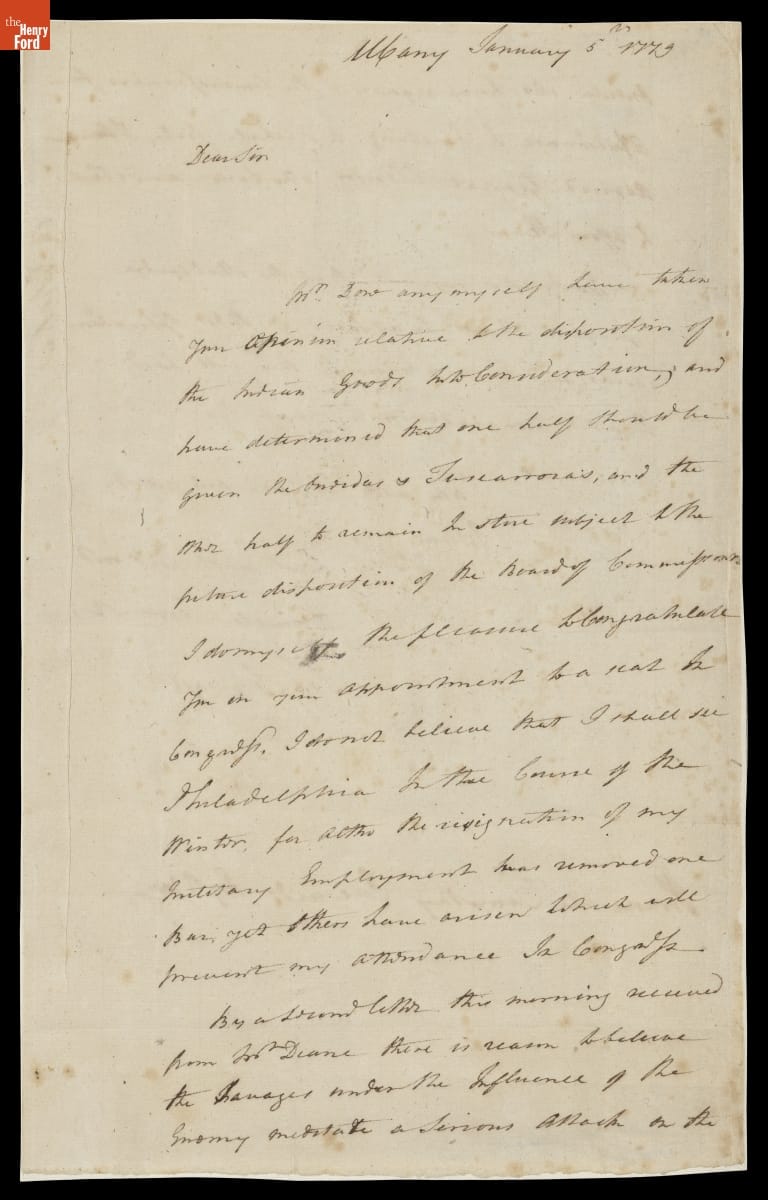 the
Henry
Ford
Albany January 5th 1779
Dear Sir
Mr. Dow any myself have taken
Your Opinion relative to the disposition of
the Indian Goods Into Consideration, and
have determined that one half should be
given the Onidas & Tuscarroras, and the
other half to remain In store subject to the
future disposition of the Board of Commissioners
I do myself the pleasure to Congratulate
You on your appointment to a seat In
Congress. I do not believe that I shall see
Philadelphia In the Course of the
Winter, for altho the resignation of my
Military Employment has removed one
Bar, yet others have arisen which will
prevent my attendance In Congress
By a second letter this morning received
from Mr. Deane there is reason to believe
the Savages under the Influence of the
Enemy meditate a serious Attack on the